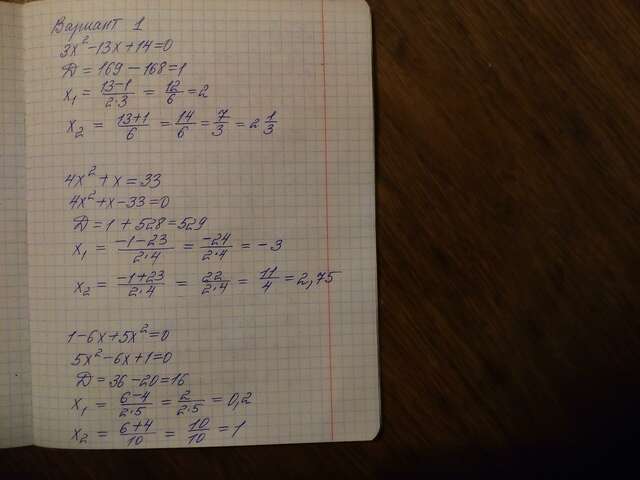 Вариант 1
3x² - 13x + 14 = 0
D = 169 - 168 = 1
x₁ = (13-1)/(2·3) = 12/6 = 2
x₂ = (13+1)/6 = 14/6 = 7/3 = 2 1/3
4x² + x = 33
4x² + x - 33 = 0
D = 1 + 528 = 529
x₁ = (-1-23)/(2·4) = -24/(2·4) = -3
x₂ = (-1+23)/(2·4) = 22/(2·4) = 11/4 = 2,75
1 - 6x + 5x² = 0
5x² - 6x + 1 = 0
D = 36 - 20 = 16
x₁ = (6-4)/(2·5) = 2/(2·5) = 0,2
x₂ = (6+4)/10 = 10/10 = 1